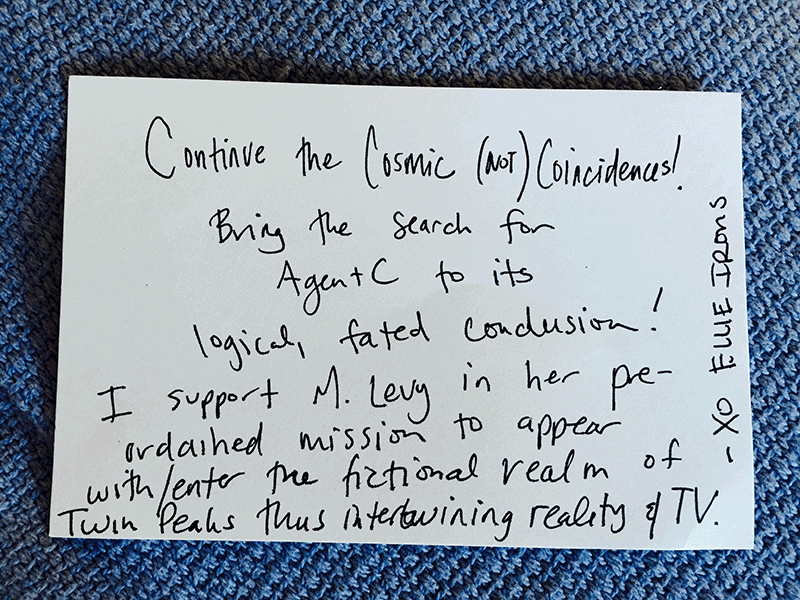 Continue the Cosmic (NOT) Coincidences!
Bring the search for
Agent C to its
logical, fated conclusion!
I support M. Levy in her pre-
ordained mission to appear
with/enter the fictional realm of
Twin Peaks thus intertwining reality & TV.
- XO ELLIE IRONS